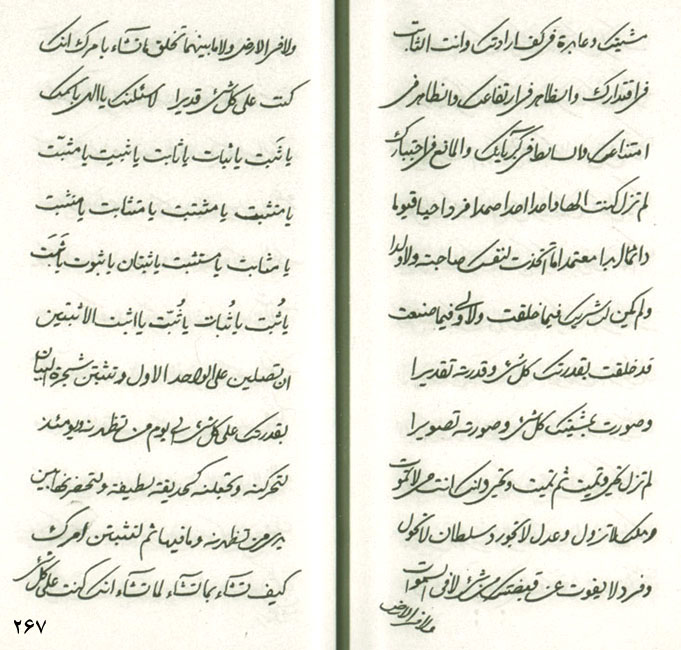 مشیتک و عابرة فی کف ارادتک و انت الثابت
فی اقتدارک و الظاهر فی ارتفاعک و الظاهر فی
امتناعک و السالط فی کبریائک و المانع فی اختیارک
لم تزل کنت الها واحدا احدا صمدا فردا حیا قیوما
دائما ابدا معتمدا ما اتخذت لنفسک صاحبة ولا ولدا
ولم یکن لک شریک فیما خلقت ولا ولی فیما صنعت
قد خلقت بقدرتک کل شیء و قدرته تقدیرا
و صورت بمشیتک کل شیء و صورته تصویرا
لم تزل تحیی و تمیت ثم تمیت و تحیی و انک انت حی لا تموت
و ملک لا تزول و عدل لا تجور و سلطان لا تحول
و فرد لا یفوت عن قبضتک من شیء لا فی السموات
ولا فی الارض
ولا فی الارض ولا ما بینهما تخلق ما تشاء بامرک انک
کنت علی کل شیء قدیرا لاسئلنک یا الهی باسمک
یا ثبت یا ثبات یا ثابت یا ثبیت یا مثبت
یا منثبت یا مثتبت یا متثابت یا متثبت
یا مثابت یا مستثبت یا ثبتان یا ثبوت یا ثبت
یا ثبت یا ثبات یا ثبت یا اثبت الاثبتین
ان تصلین علی الواحد الاول و تثبتن شجرة البیان
بقدرتک علی کل شیء الی یوم من تظهرنه و یومئذ
لتحرکنه و تجعلنه کحدیقة لطیفة و لتحضرنها بین
یدی من تظهرنه و ما فیها ثم لتثبتن امرک
کیف تشاء بما تشاء لما تشاء انک کنت علی کل شیء
۲۶۷